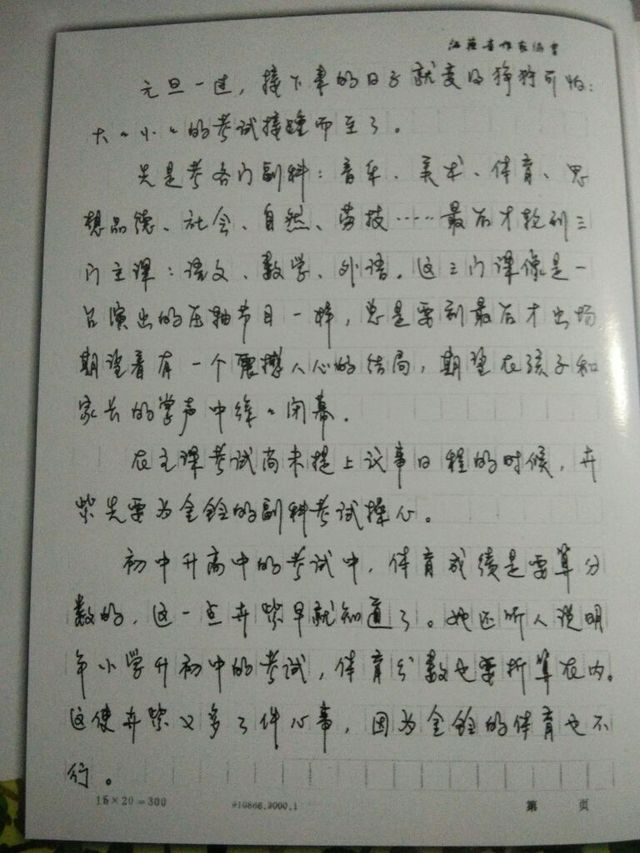 江苏省作家协会
元旦一过，接下来的日子就变得狰狞可怕：
大大小小的考试接踵而至了。
先是考各门副科：音乐、美术、体育、思
想品德、社会、自然、劳技……最后才轮到三
门主课：语文、数学、外语。这三门课像是一
台演出的压轴节目一样，总是要到最后才出场
期望着有一个震撼人心的结局，期望在孩子和
家长的掌声中徐徐闭幕.
在主课考试尚未提上议事日程的时候，卉
紫先要为金铃的副科考试操心。
初中升高中的考试中，体育成绩是要算分
数的，这一点卉紫早就知道了。她还听人说明
年小学升初中的考试，体育分数也要折算在内。
这使卉紫又多了件心事，因为金铃的体育也不
行。
15×20=300
910866.2000.1
第 页